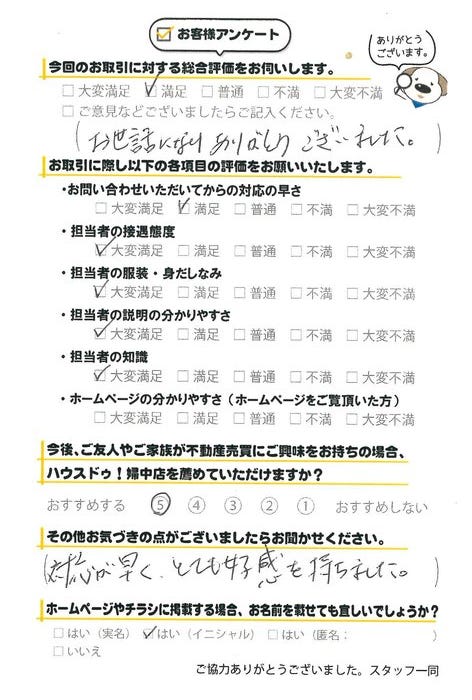 ☑ お客様アンケート
ありがとう
ございます。
今回のお取引に対する総合評価をお伺いします。
□ 大変満足 ☑ 満足 □ 普通 □ 不満 □ 大変不満
□ ご意見などございましたらご記入ください。
(お世話になりありがとうございました。)
お取引に際し以下の各項目の評価をお願いいたします。
・お問い合わせいただいてからの対応の早さ
□ 大変満足 ☑ 満足 □ 普通 □ 不満 □ 大変不満
・担当者の接遇態度
☑ 大変満足 □ 満足 □ 普通 □ 不満 □ 大変不満
・担当者の服装・身だしなみ
☑ 大変満足 □ 満足 □ 普通 □ 不満 □ 大変不満
・担当者の説明の分かりやすさ
☑ 大変満足 □ 満足 □ 普通 □ 不満 □ 大変不満
・担当者の知識
☑ 大変満足 □ 満足 □ 普通 □ 不満 □ 大変不満
・ホームページの分かりやすさ(ホームページをご覧頂いた方)
□ 大変満足 □ 満足 □ 普通 □ 不満 □ 大変不満
今後、ご友人やご家族が不動産売買にご興味をお持ちの場合、
ハウスドゥ!婦中店を薦めていただけますか?
おすすめする ⑤ ④ ③ ② ① おすすめしない
その他お気づきの点がございましたらお聞かせください。
(対応が早く、とても好感を持ちました。)
ホームページやチラシに掲載する場合、お名前を載せても宜しいでしょうか?
□ はい(実名) ☑ はい(イニシャル) □ はい(匿名: )
□ いいえ
ご協力ありがとうございました。スタッフ一同